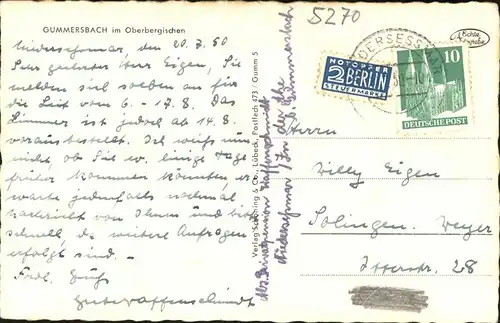 GUMMERSBACH im Oberbergischen
5270
Echte Fotografie
Niedersessmar, den 20.7.50
Sehr geehrter Herr Eigen, Sie
melden sich soeben an für
die Zeit vom 6. – 17.8. Das
Zimmer ist jedoch ab 14.8.
vorausbestellt. Ich weiß nun
nicht, ob Sie ev. einige Tage
früher kommen könnten, er-
warte jedenfalls nochmal
Nachricht von Ihnen und bitte
schnell, da weitere Anfragen
erfolgt sind. –
Frdl. Gruß
Waffenschmidt
Verlag Schöning & Co., Lübeck, Postfach 473 / Gumm 5
Abs. Privatpension Waffenschmidt
Niedersessmar / Bez. Köln
b. Gummersbach
NOTOPFER
2 BERLIN
STEUERMARKE
DERSESSMAR
10
DEUTSCHE POST
Herrn
Willy Eigen
Solingen. Weyer
Itterstr. 28